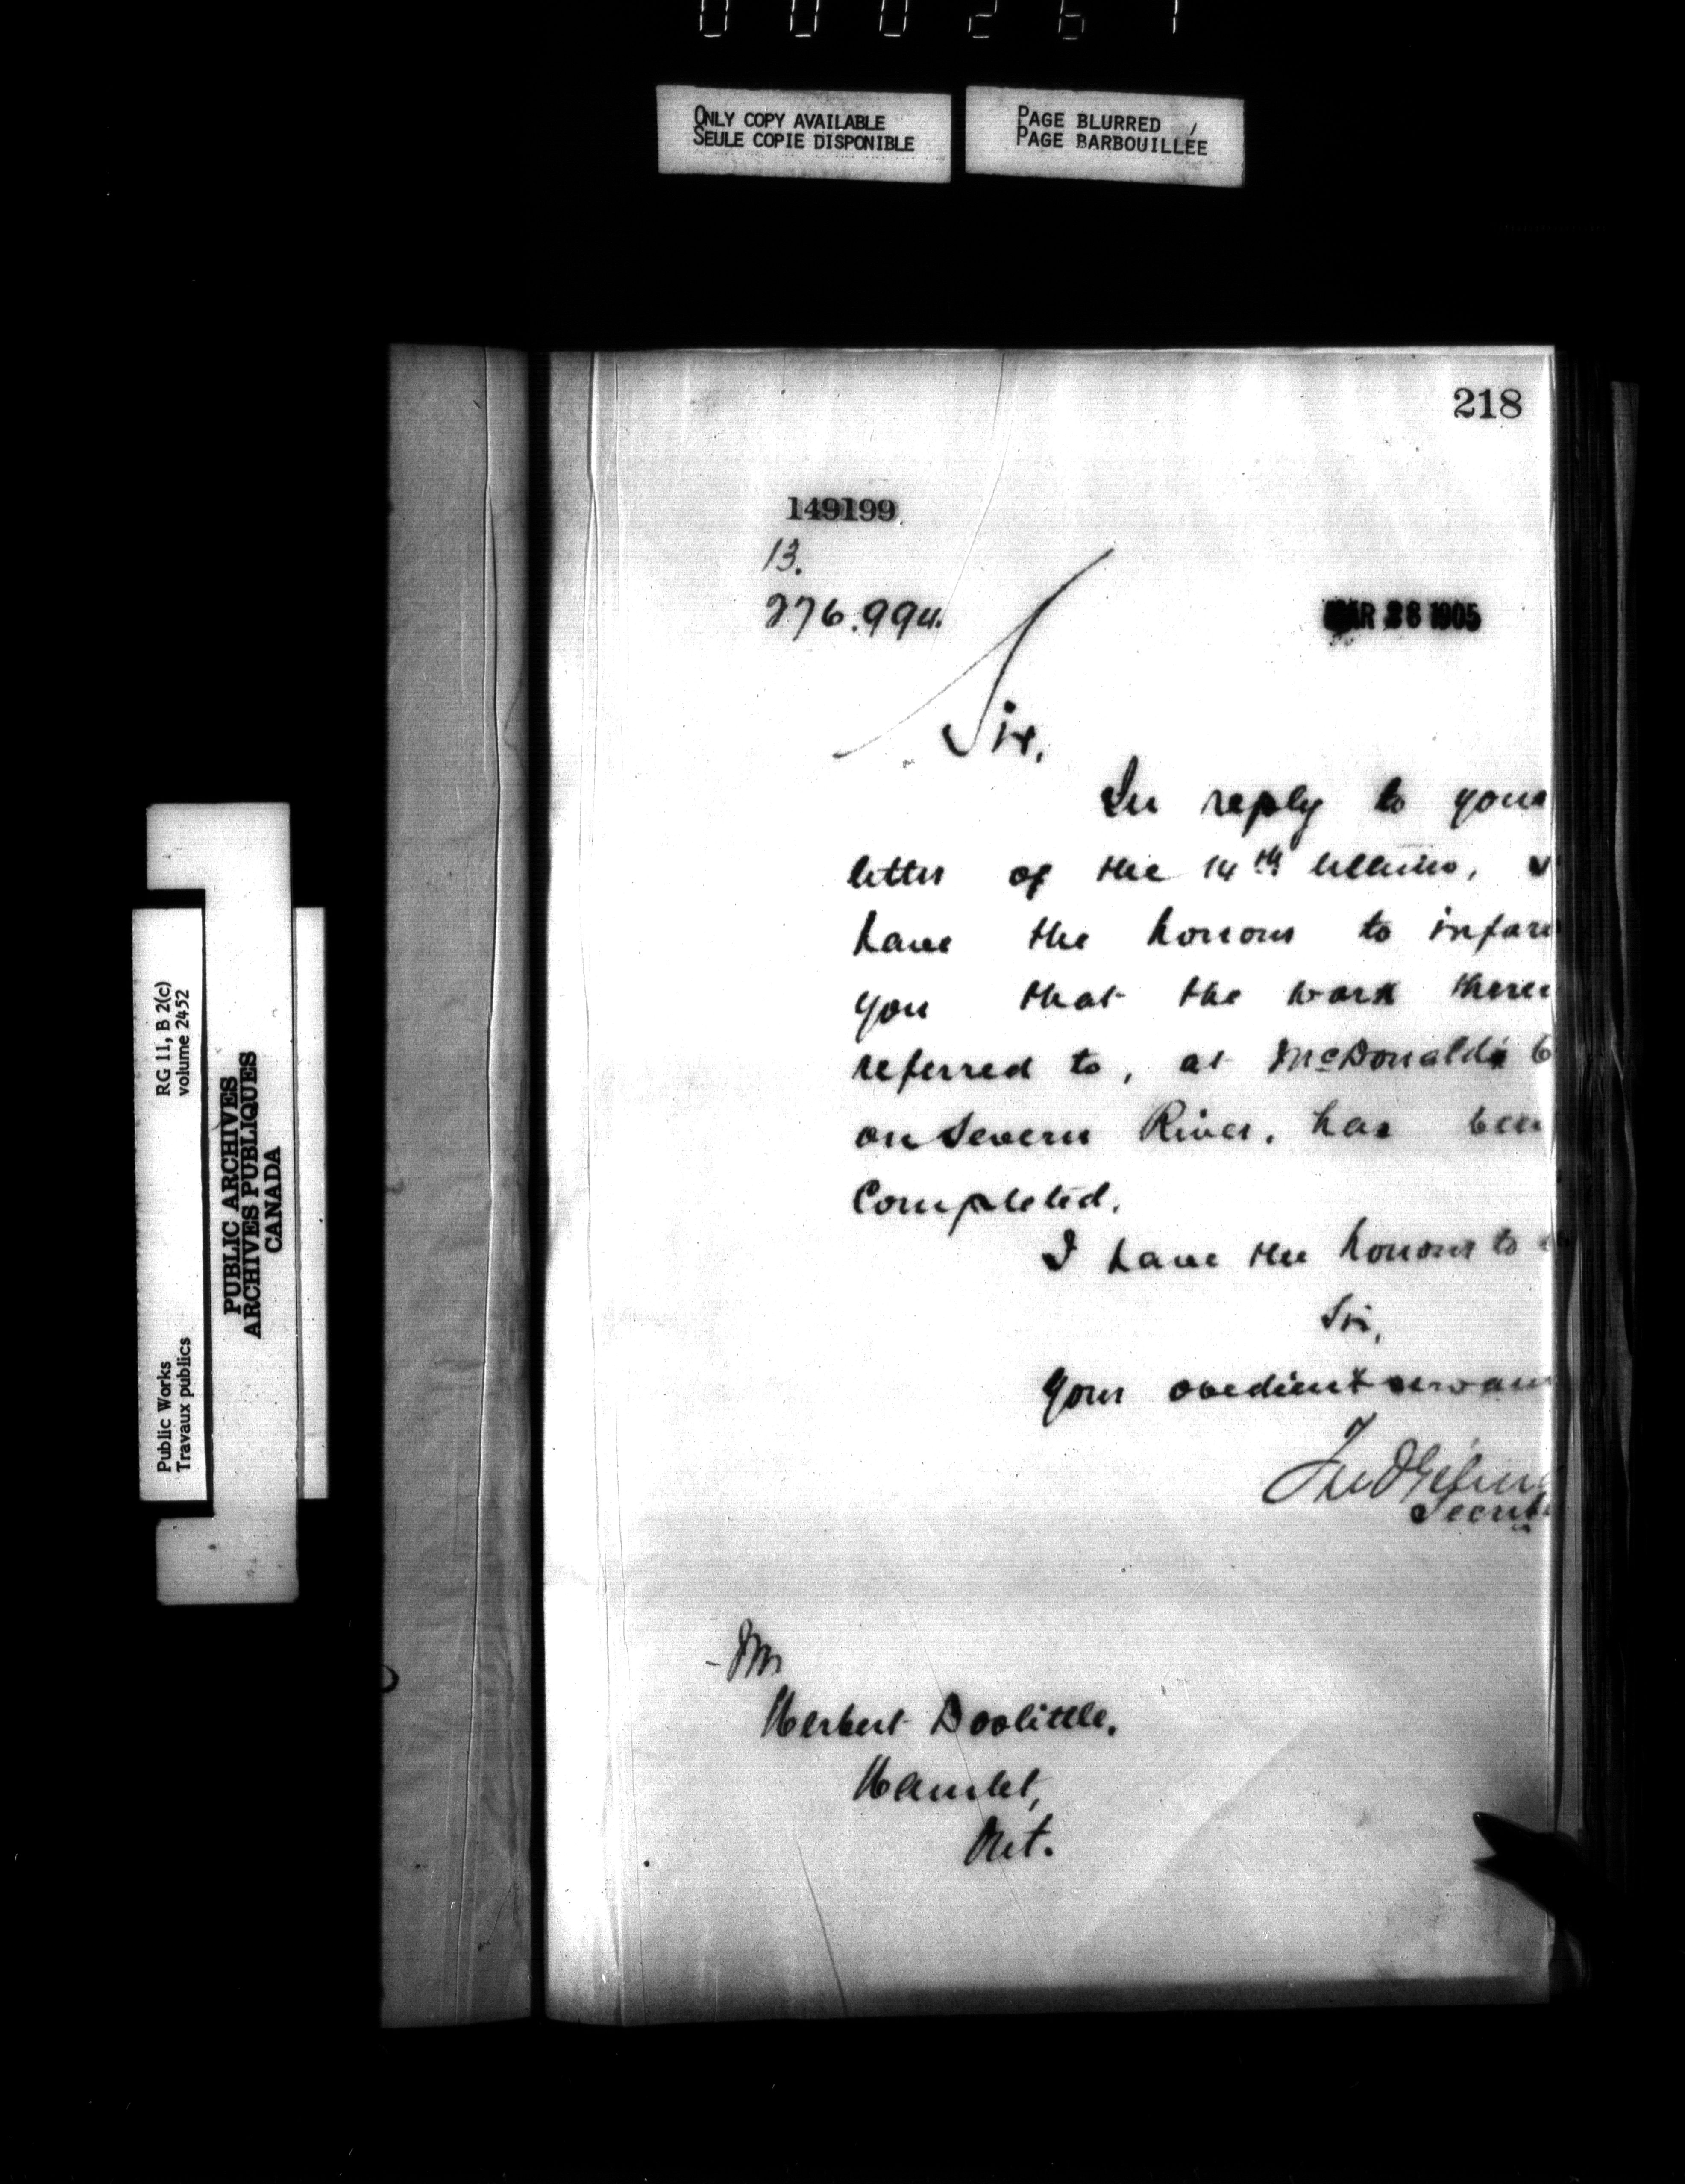 000261
ONLY COPY AVAILABLE
SEULE COPIE DISPONIBLE
PAGE BLURRED
PAGE BARBOUILLÉE
218
149199
13.
276.994.
MAR 28 1905
Sir,
In reply to your
letter of the 14th ultimo,
have the honour to infor
you that the work there
referred to, at McDonald's
on Severn River, has been
Completed.
I have the honour to
Sir,
Your obedient servan
Secret
Mr
Herbert Doolittle,
Hamlet,
Ont.
RG 11, B 2(c)
volume 2452
Public Works
Travaux publics
PUBLIC ARCHIVES
ARCHIVES PUBLIQUES
CANADA